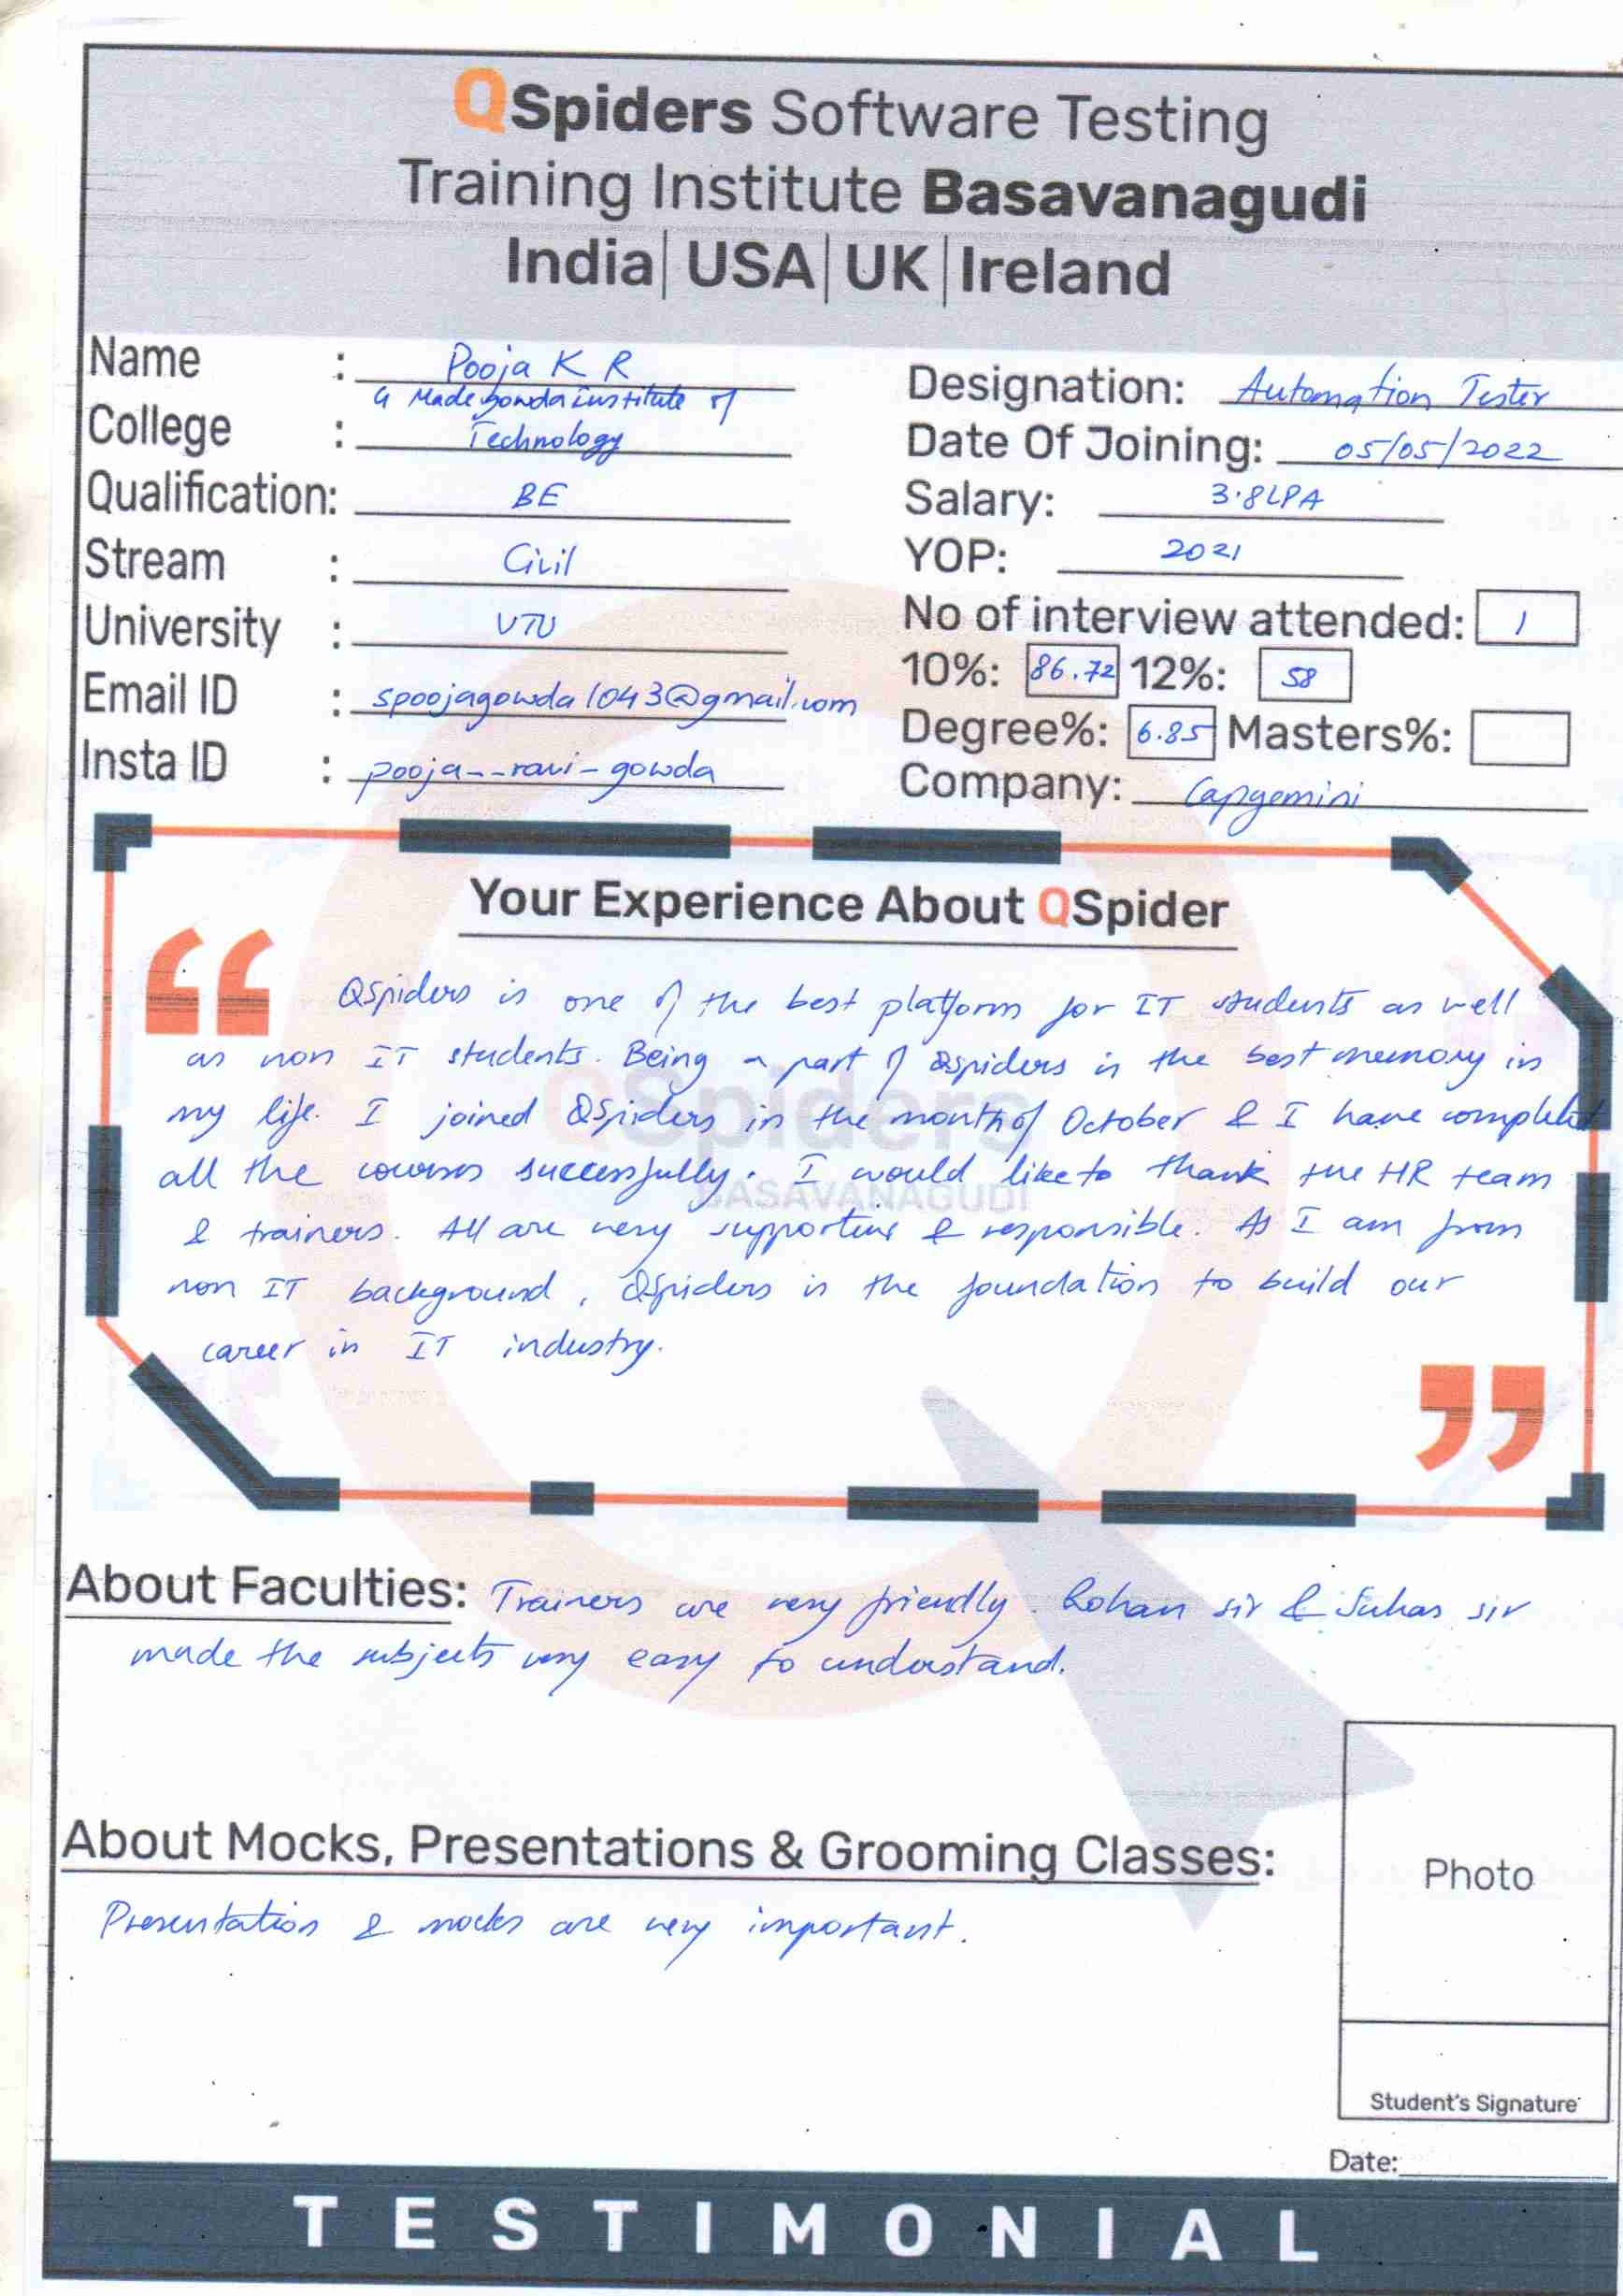 QSpiders Software Testing
Training Institute Basavanagudi
India| USA| UK |Ireland
Name : Pooja K R
College : G Madegowda institute of
Technology
Qualification: BE
Stream : Civil
University : VTU
Email ID : spoojagowda1043@gmail.com
Insta ID : pooja--ravi-gowda
Designation: Automation Tester
Date Of Joining: 05/05/2022
Salary: 3.8LPA
YOP: 2021
No of interview attended: 1
10%: 86.72 12%: 58
Degree%: 6.85 Masters%:
Company: Capgemini
Your Experience About QSpider
QSpiders is one of the best platform for IT students as well
as non IT students. Being a part of QSpiders is the best memory in
my life. I joined QSpiders in the month of October & I have completed
all the courses successfully. I would like to thank the HR team
& trainers. All are very supportive & responsible. As I am from
non IT background, QSpiders is the foundation to build our
career in IT industry.
QSpiders
BASAVANAGUDI
About Faculties: Trainers are very friendly. Rohan sir & Suhas sir
made the subjects very easy to understand.
About Mocks, Presentations & Grooming Classes:
Presentation & mocks are very important.
Photo
Student's Signature
Date:
TESTIMONIAL